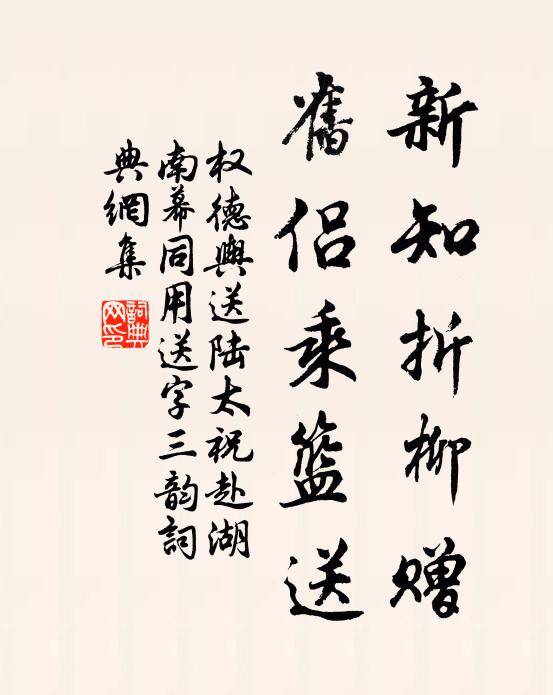 新知折柳赠
舊侣乘籃送
权德輿送陆太祝赴湖
南幕同用送字三韵詞
典網集
詞典
网印